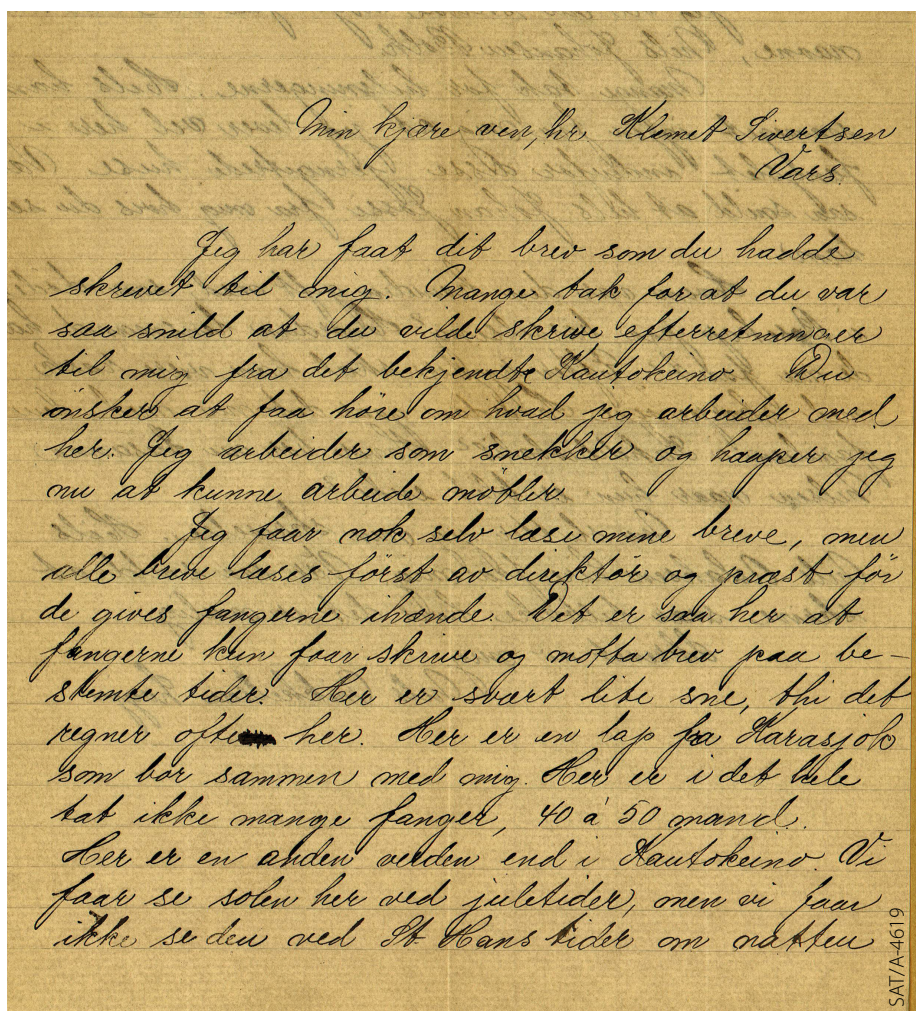 Min kjære ven, hr. Klemet Sivertsen
Vars.
Jeg har faat dit brev som du hadde
skrevet til mig. Mange tak for at du var
saa snild at du vilde skrive efterretninger
til mig fra det bekjendte Kautokeino. Du
ønsker at faa høre om hvad jeg arbeider med
her. Jeg arbeider som snekker og haaper jeg
nu at kunne arbeide møbler.
Jeg faar nok selv læse mine breve, men
alle breve læses først av direktør og præst før
de gives fangerne ihænde. Det er saa her at
fangerne kun faar skrive og motta brev paa be-
stemte tider. Her er svært lite sne, thi det
regner ofte her. Her er en lap fra Karasjok
som bor sammen med mig. Her er i det hele
tat ikke mange fanger, 40 á 50 mand.
Her er en anden verden end i Kautokeino. Vi
faar se solen her ved juletider, men vi faar
ikke se den ved St. Hans tider om natten
SAT/A-4619